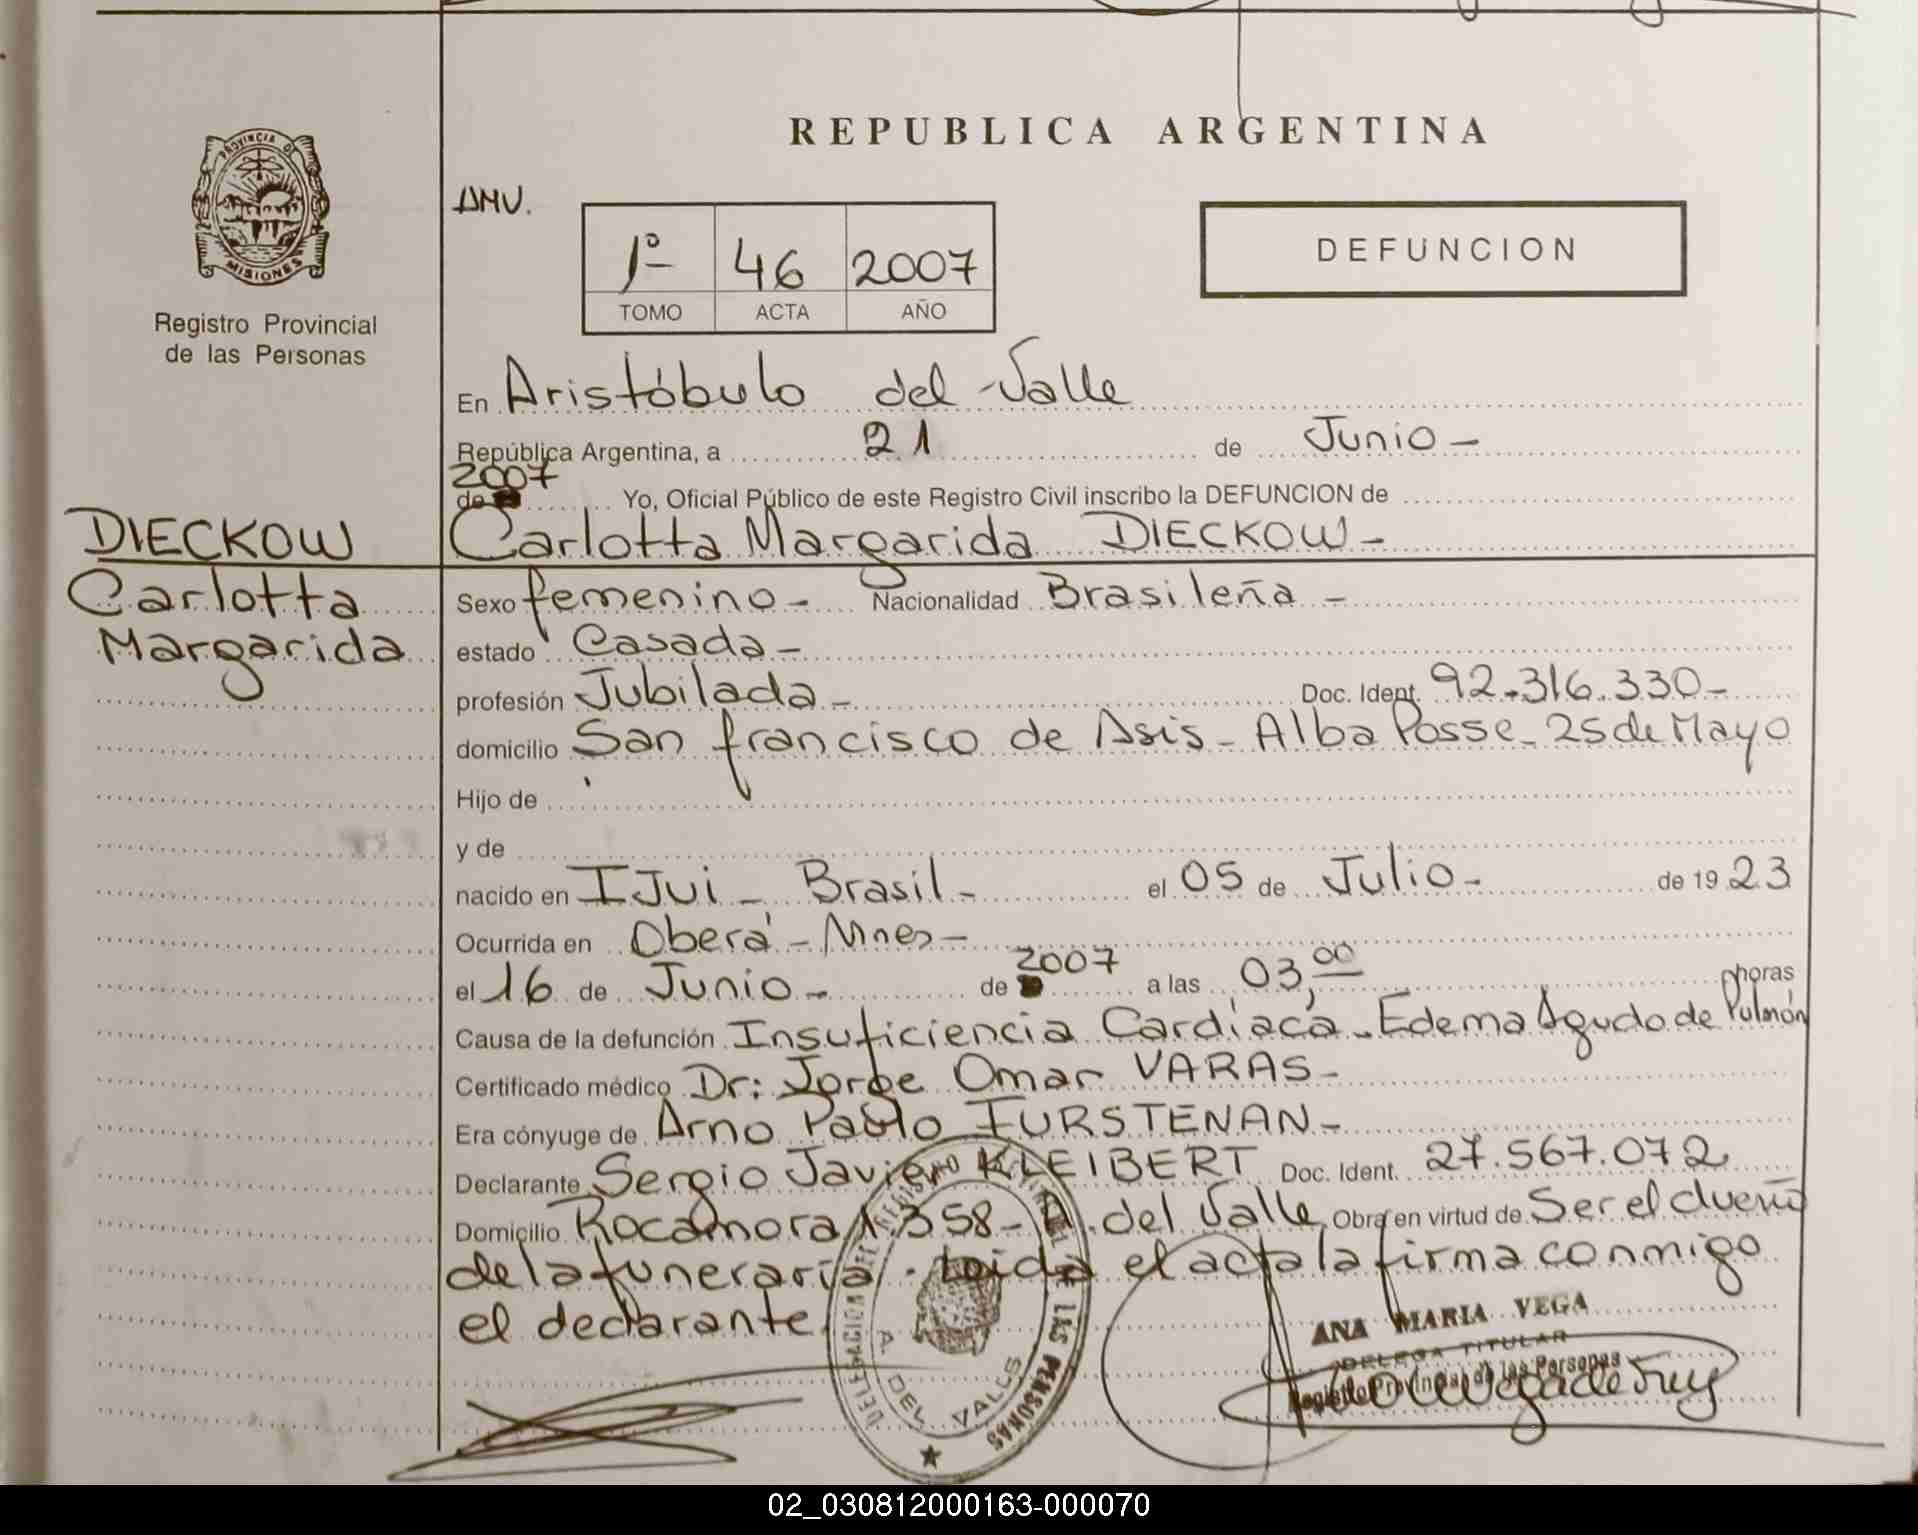 REPUBLICA ARGENTINA
PROVINCIA DE
MISIONES
Registro Provincial
de las Personas
AMV.
1º 46 2007
TOMO ACTA AÑO
DEFUNCION
En Aristóbulo del Valle
República Argentina, a 21 de Junio -
2007
de Yo, Oficial Público de este Registro Civil inscribo la DEFUNCION de
DIECKOW
Carlotta
Margarida
Carlotta Margarida DIECKOW -
Sexo femenino - Nacionalidad Brasileña -
estado Casada -
profesión Jubilada - Doc. Ident. 92.316.330 -
domicilio San francisco de Asis - Alba Posse - 25 de Mayo
Hijo de
y de
nacido en IJui - Brasil - el 05 de Julio - de 1923
Ocurrida en Oberá - Mnes -
el 16 de Junio - de 2007 a las 03,00 horas
Causa de la defunción Insuficiencia Cardíaca - Edema Agudo de Pulmón
Certificado médico Dr: Jorge Omar VARAS -
Era cónyuge de Arno Pablo FURSTENAN -
Declarante Sergio Javier KLEIBERT Doc. Ident. 27.567.072
Domicilio Rocamora 1.358 - A. del Valle Obra en virtud de Ser el dueño
de la funeraria. Leida el acta la firma conmigo
el declarante
DELEGACION DEL REGISTRO PROVINCIAL DE LAS PERSONAS
A. DEL VALLE
ANA MARIA VEGA
DELEGA TITULAR
Registro Provincial de las Personas
02_030812000163-000070